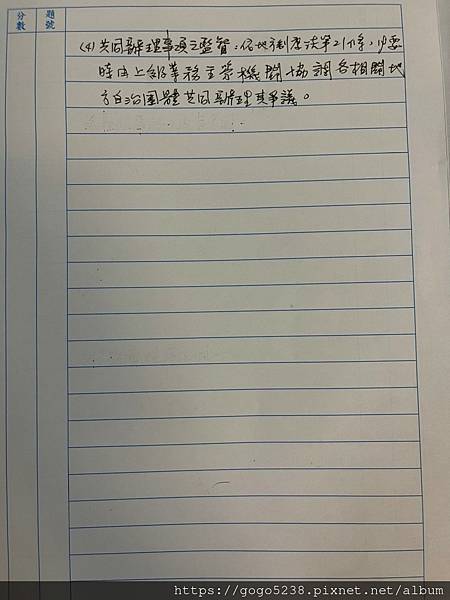 分數
題號
(4)共同辦理事項之監督:依地方制度法第21條,必要
時由上級業務主管機關協調各相關地
方自治團體共同辦理其爭議。
https://gogo5238.pixnet.net/album